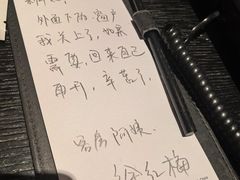 外面下雨,窗户
我关上了,如果
需要,回来自己
再开,辛苦了,
客房阿姨:
徐红梅